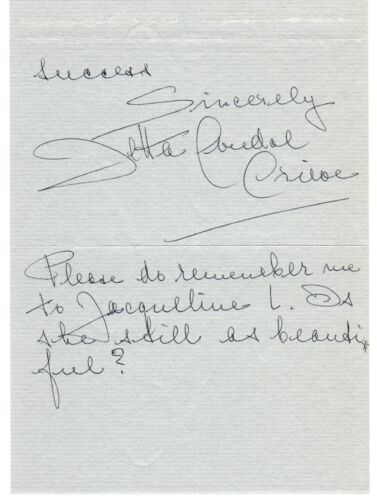 success
Sincerely
Jetta Goudal
Grieve
Please do remember me
to Jacqueline L. Is
she still as beauti-
ful?